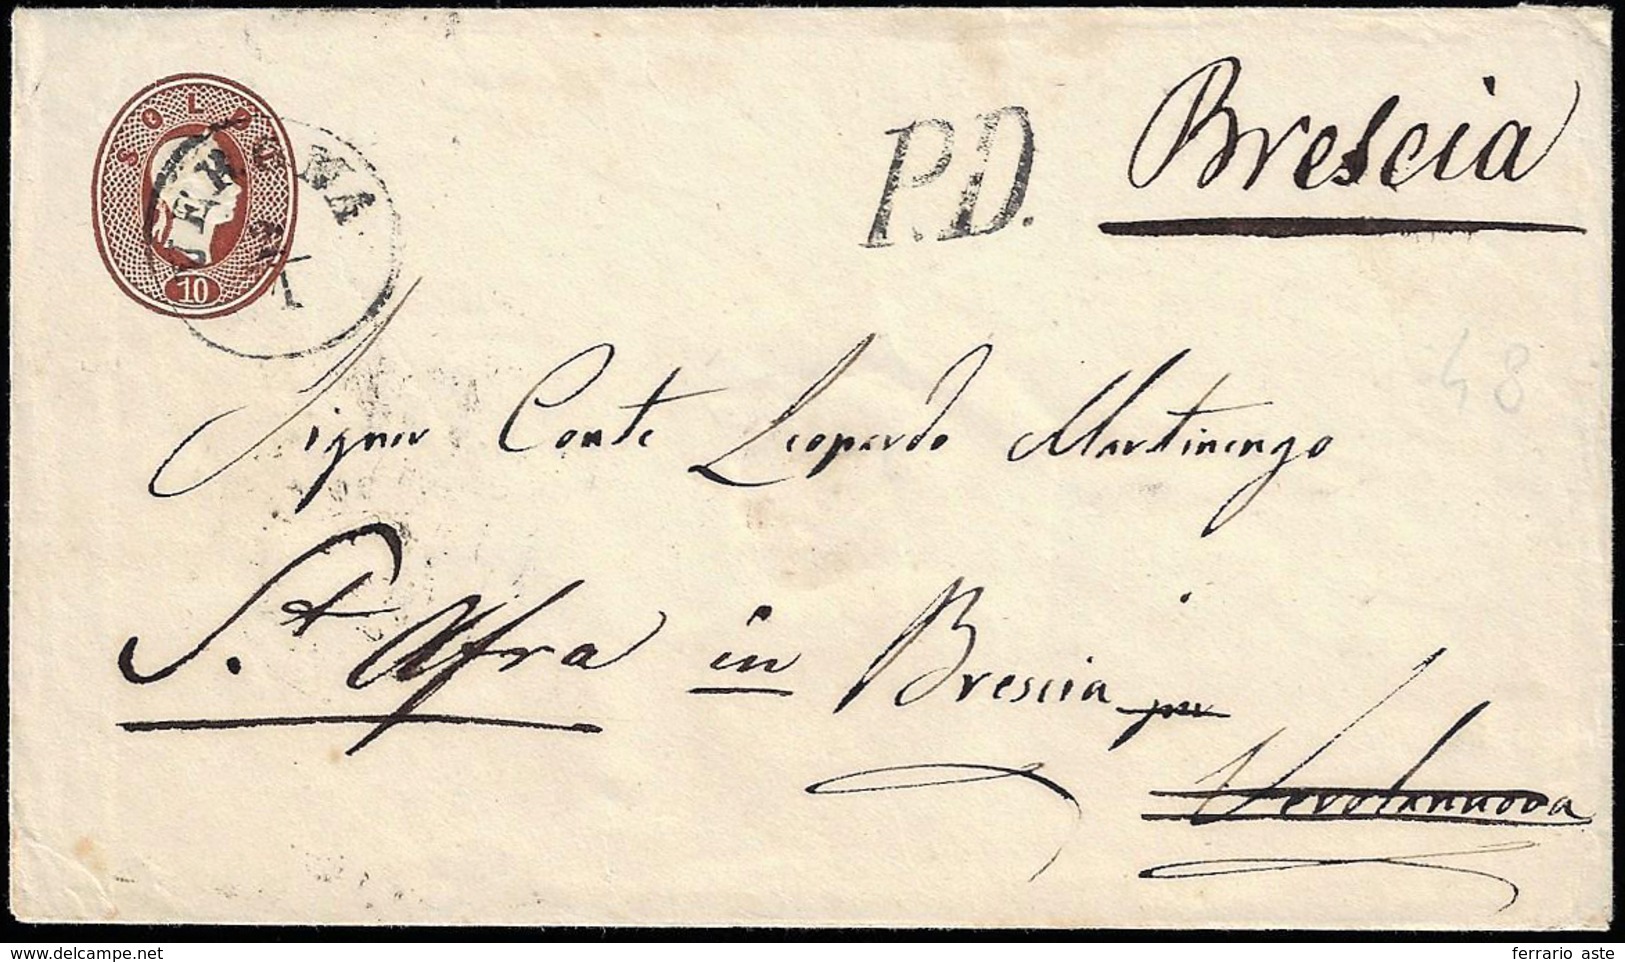 SOLDI
10
VERONA
P.D.
Brescia
48
Signor Conte Leopardo Martinengo
S.t Afra in Brescia per
Verolanuova
delcampe.net
ferrario aste